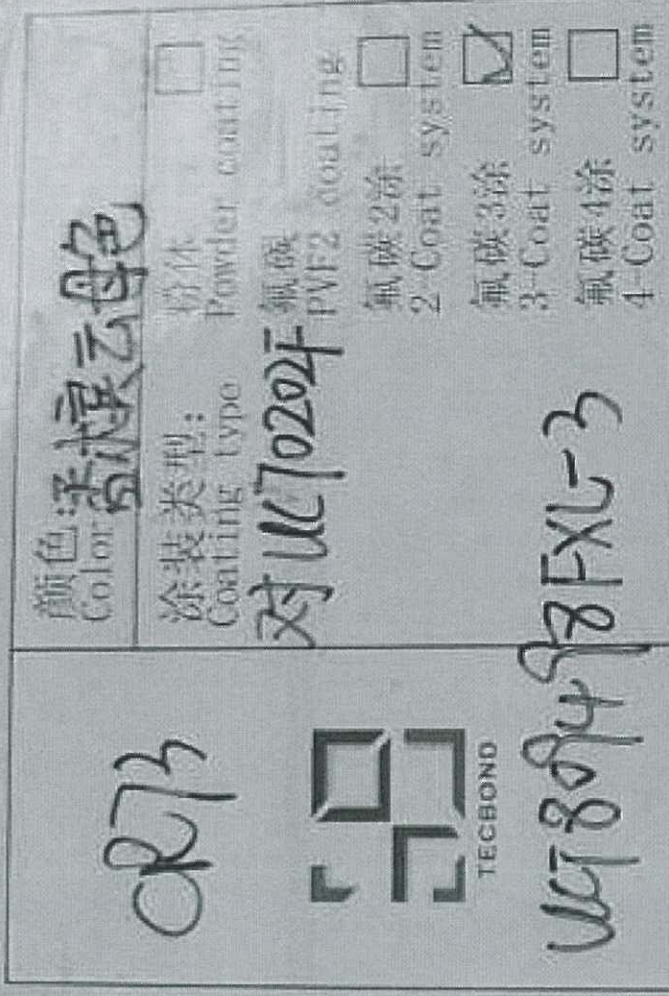 CR73
TECBOND
UC780498FXL-3
颜色:
Color
云母色
涂装类型:
Coating type
粉体
Powder coating
对UC70204F
氟碳
PVF2 coating
氟碳2涂
2-Coat system
氟碳3涂
3-Coat system
氟碳4涂
4-Coat system